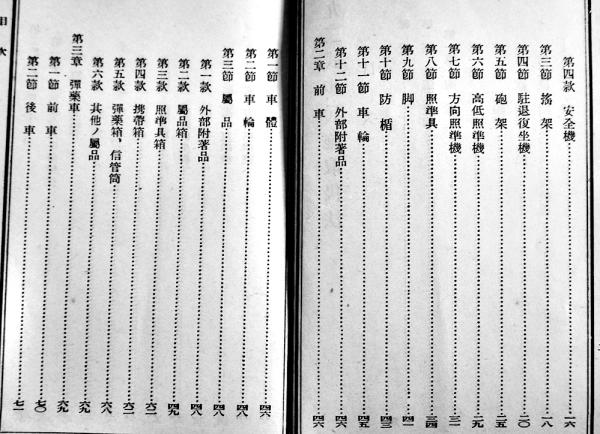 第四款 安全機 一六
第三節 搖架 一八
第四節 駐退復坐機 二〇
第五節 砲架 二五
第六節 高低照準機 二九
第七節 方向照準機 三一
第八節 照準具 三四
第九節 脚 四一
第十節 防楯 四二
第十一節 車輪 四五
第十二節 外部附著品 四六
第二章 前車 四六
第一節 車體 四六
第二節 車輪 四八
第三節 屬品 四八
第一款 外部附著品 四八
第二款 屬品箱 四九
第三款 照準具箱 六二
第四款 携帶箱 六二
第五款 彈藥箱、信管筒 六八
第六款 其他ノ屬品 六九
第三章 彈藥車 六九
第一節 前車 七〇
第二節 後車 七一
目次